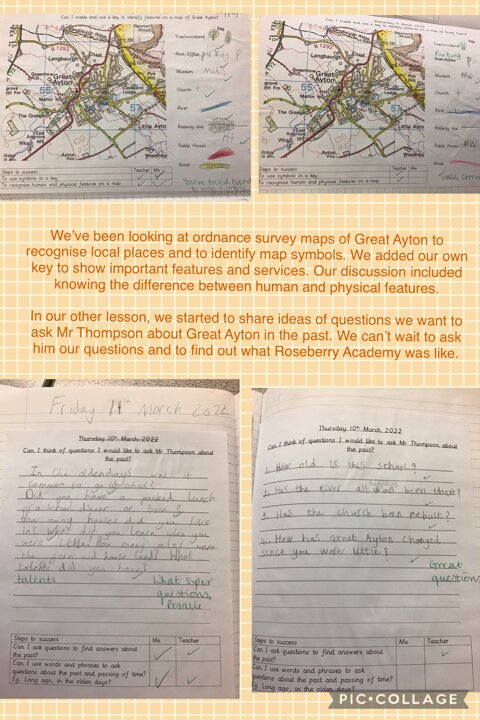 Can I create and use a key to identify features on a map of Great Ayton?
Key
Tree/woodland
Post Office parking P
Museum Mu
Church +
River
Railway line
Public House
Road
Langbaurgh
Great Ayton
B 1292
Greenhow
Manor
The Grange
East Angrove
Ayton Firs
Little Ayto
55
57
Steps to success Teacher Me
To use symbols in a key
To recognise human and physical features on a map
You've tried hard
Wednesday 9 March 2022
Can I create and use a key to identify features on a map of Great Ayton?
Key
Tree/woodland
Parking
Post Office P
Museum Mu
Church +
River
Railway line
Public House
Road
Langbaurgh
Great Ayton
B 1292
Greenhow
Manor
The Grange
East Angrove
Ayton Firs
Little Ayto
55
57
Steps to success Teacher Me
To use symbols in a key
To recognise human and physical features on a map
We've been looking at ordnance survey maps of Great Ayton to
recognise local places and to identify map symbols. We added our own
key to show important features and services. Our discussion included
knowing the difference between human and physical features.
In our other lesson, we started to share ideas of questions we want to
ask Mr Thompson about Great Ayton in the past. We can't wait to ask
him our questions and to find out what Roseberry Academy was like.
Friday 11th March 2022
Thursday 10th March 2022
Can I think of questions I would like to ask Mr Thompson about
the past?
In the oldendays was it
common to go to school?
Did you have a packed lunch
or a school dinner or both?
how many houses did you live
in? What did you learn wen you
were little? How many miles were
the farm and house land? What
did you have?
talents
What super
questions,
Rosalie
Steps to success Me Teacher
Can I ask questions to find answers about
the past?
Can I use words and phrases to ask
questions about the past and passing of time?
Eg. Long ago, in the olden days?
Thursday 10th March 2022
Can I think of questions I would like to ask Mr Thompson about
the past?
1. How old is this school?
always
2. Has the River all was been there?
3. Has the church been rebult?
4. How has Great Ayton changed
since you were little?
Great
questions
Steps to success Me Teacher
Can I ask questions to find answers about
the past?
Can I use words and phrases to ask
questions about the past and passing of time?
Eg. Long ago, in the olden days?
PIC•COLLAGE